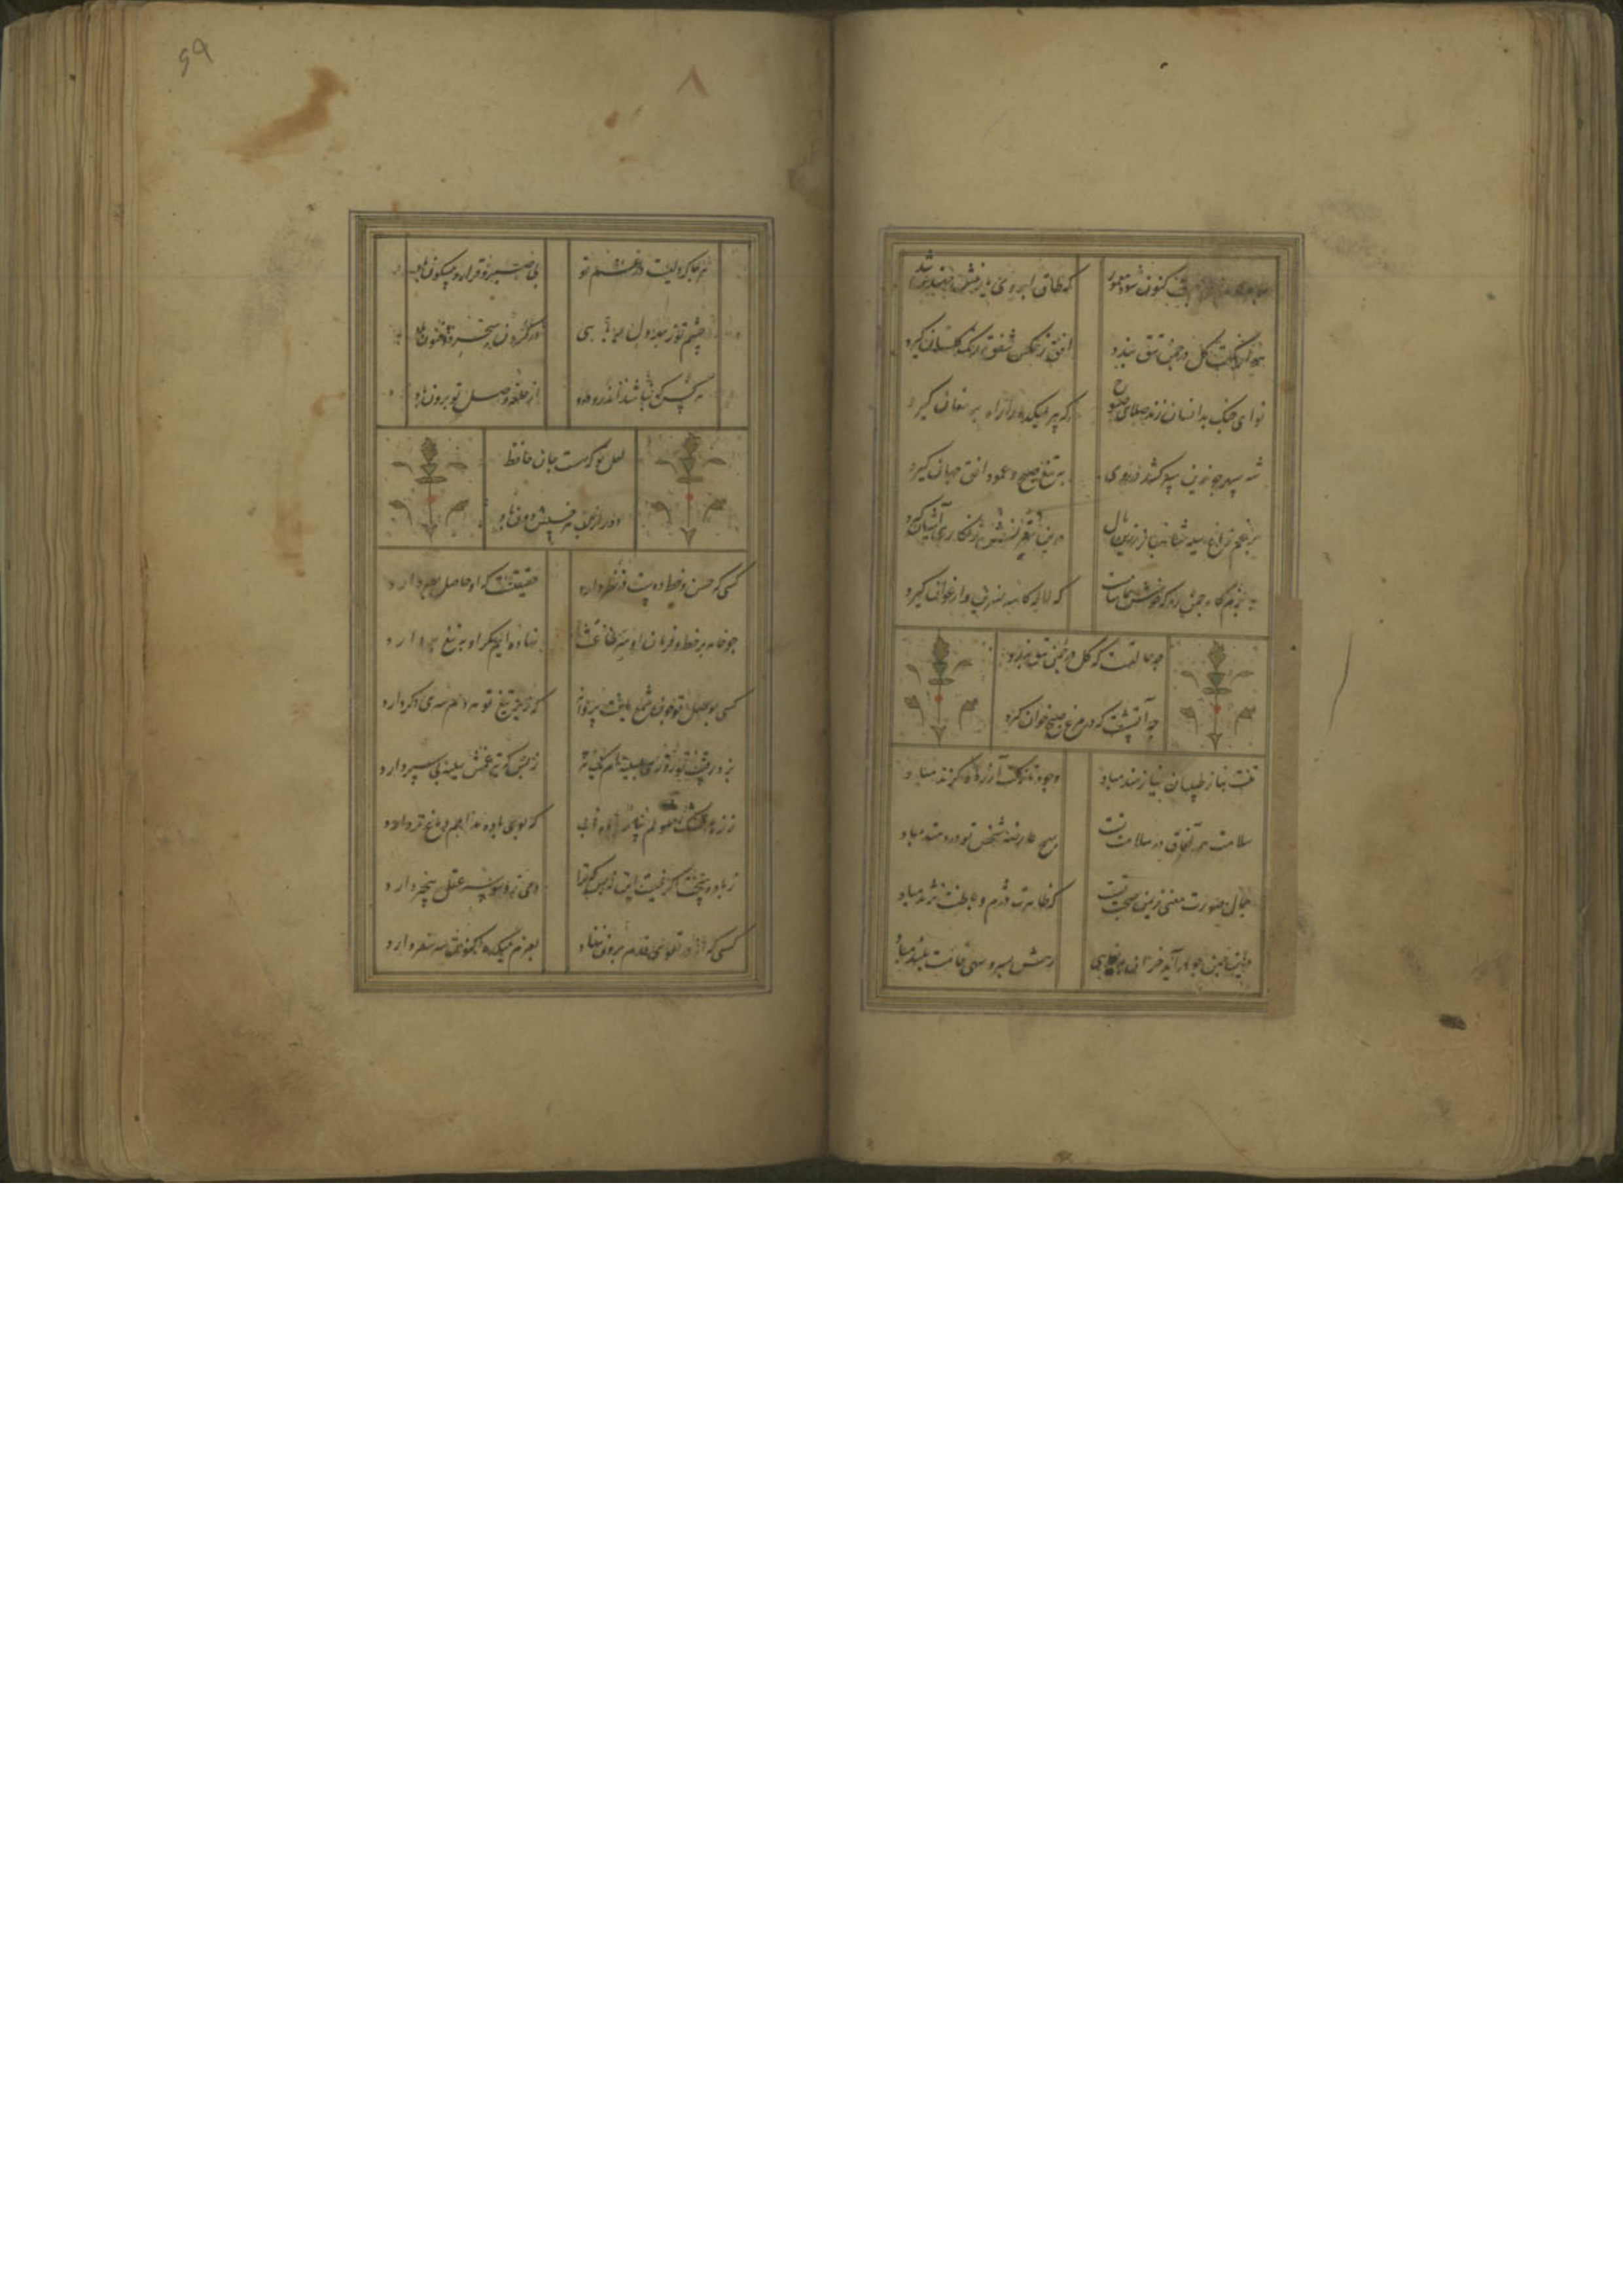 کنون شود معمور که طاق ابروی یار منش مهندس شد
بنکهت گل در چمن تتق بندد افق ز عکس شفق رنگ گلستان گیرد
نوای چنگ بدانسان زند صلای صبوح که پیر میکده راه در مغان گیرد
شه سپهر چو زرین سپر کشد در روی به تیغ صبح و عمود افق جهان گیرد
برغم زاغ سیه شاهباز زرین بال درین مقرنس زنگاری آشیان گیرد
به بزمگاه چمن رو که خوش تماشائیست که لاله کاسه نسرین و ارغوان گیرد
چه حالتست که گل در چمن
چه آتشست که در مرغ صبح خوان گیرد
تنت بناز طبیبان نیازمند مباد وجود نازکت آزرده گزند مباد
سلامت همه آفاق در سلامت تست بهیچ عارضه شخص تو دردمند مباد
جمال صورت معنی ز یمن صحت تست که ظاهرت دژم و باطنت نژند مباد
درین چمن چو درآید خزان رهش بسرو سهی قامت بلند مباد
۶۹
۸
هر جا که دلیست در غم تو بی صبر و قرار و بیسکون باد
چشم تو ز بهر دلربایی در کردن سحر ذوفنون باد
هر کس که نباشد از حلقه وصل تو برون باد
لعل تو که هست جان حافظ
دور از لب هر خسیس دون باد
کسی که حسن و خط دوست در نظر دارد که او حاصل بصر دارد
چو خامه بر خط فرمان او سر طاعت نهاده ایم مگر او به تیغ بردارد
کسی بوصل تو چون شمع یافت پروانه که زیر تیغ تو هر دم سری دگر دارد
بزد رقیب تو روزی بسینه ام ز بس که تیر غمش سینه بی سپر دارد
ز زهد خشک ملولم که بوی باده مدامم دماغ تر دارد
ز باده هیچت اگر نیست این نه بس که ترا دمی ز وسوسه عقل بیخبر دارد
کسی که از در تقوی قدم برون ننهاد بعزم میکده اکنون سر سفر دارد